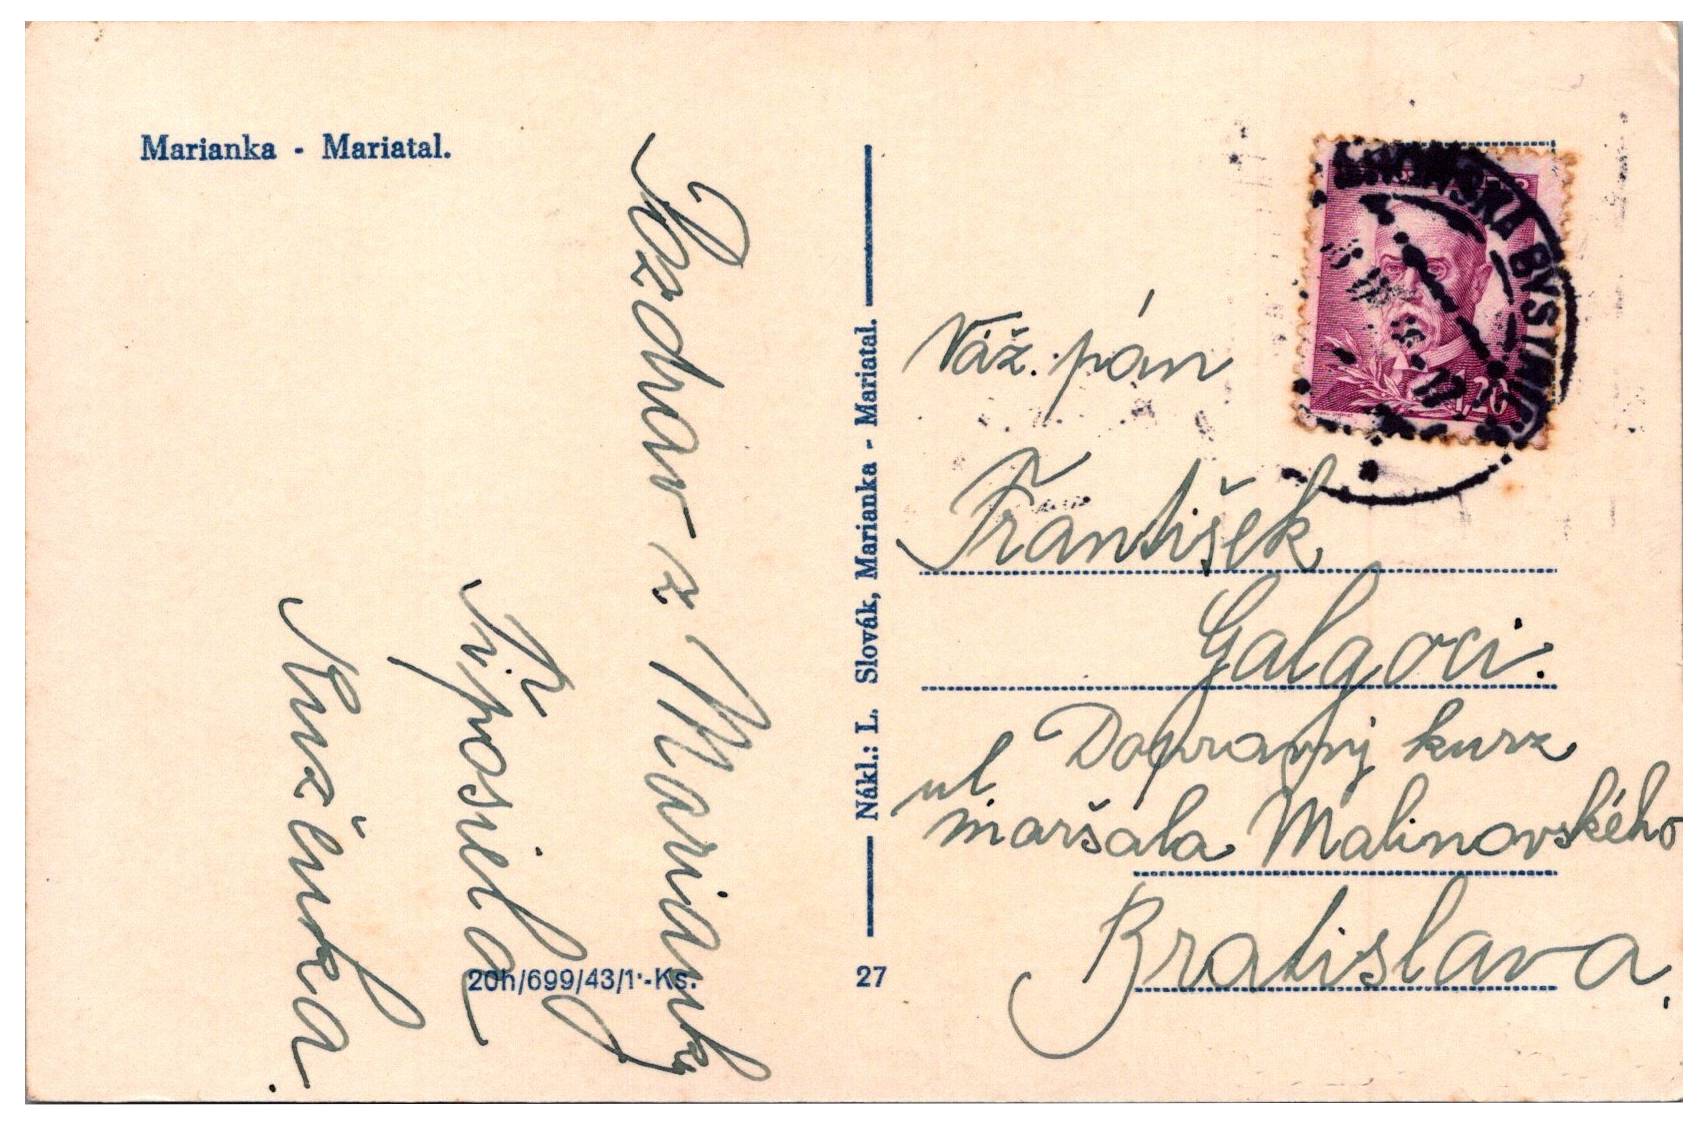 Marianka - Mariatal.
Pozdrav z Marianky
Ti posiela
Ruženka.
20h/699/43/1·-Ks.
Nákl.: L. Slovák, Marianka - Mariatal.
27
BYSTRICA
1,20
Váž. pán
František
Galgoci.
Dopravný kurz
ul
maršala Malinovského
Bratislava.